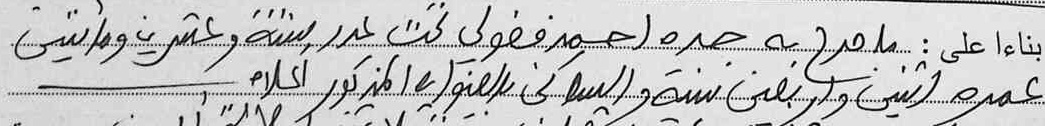 بناءا على : ما صرح به جده احمد فضولي تحت عدد ستة وعشرين ومائتين
عمره اثنين واربعين سنة والساكن بالعنوان المذكور اعلاه